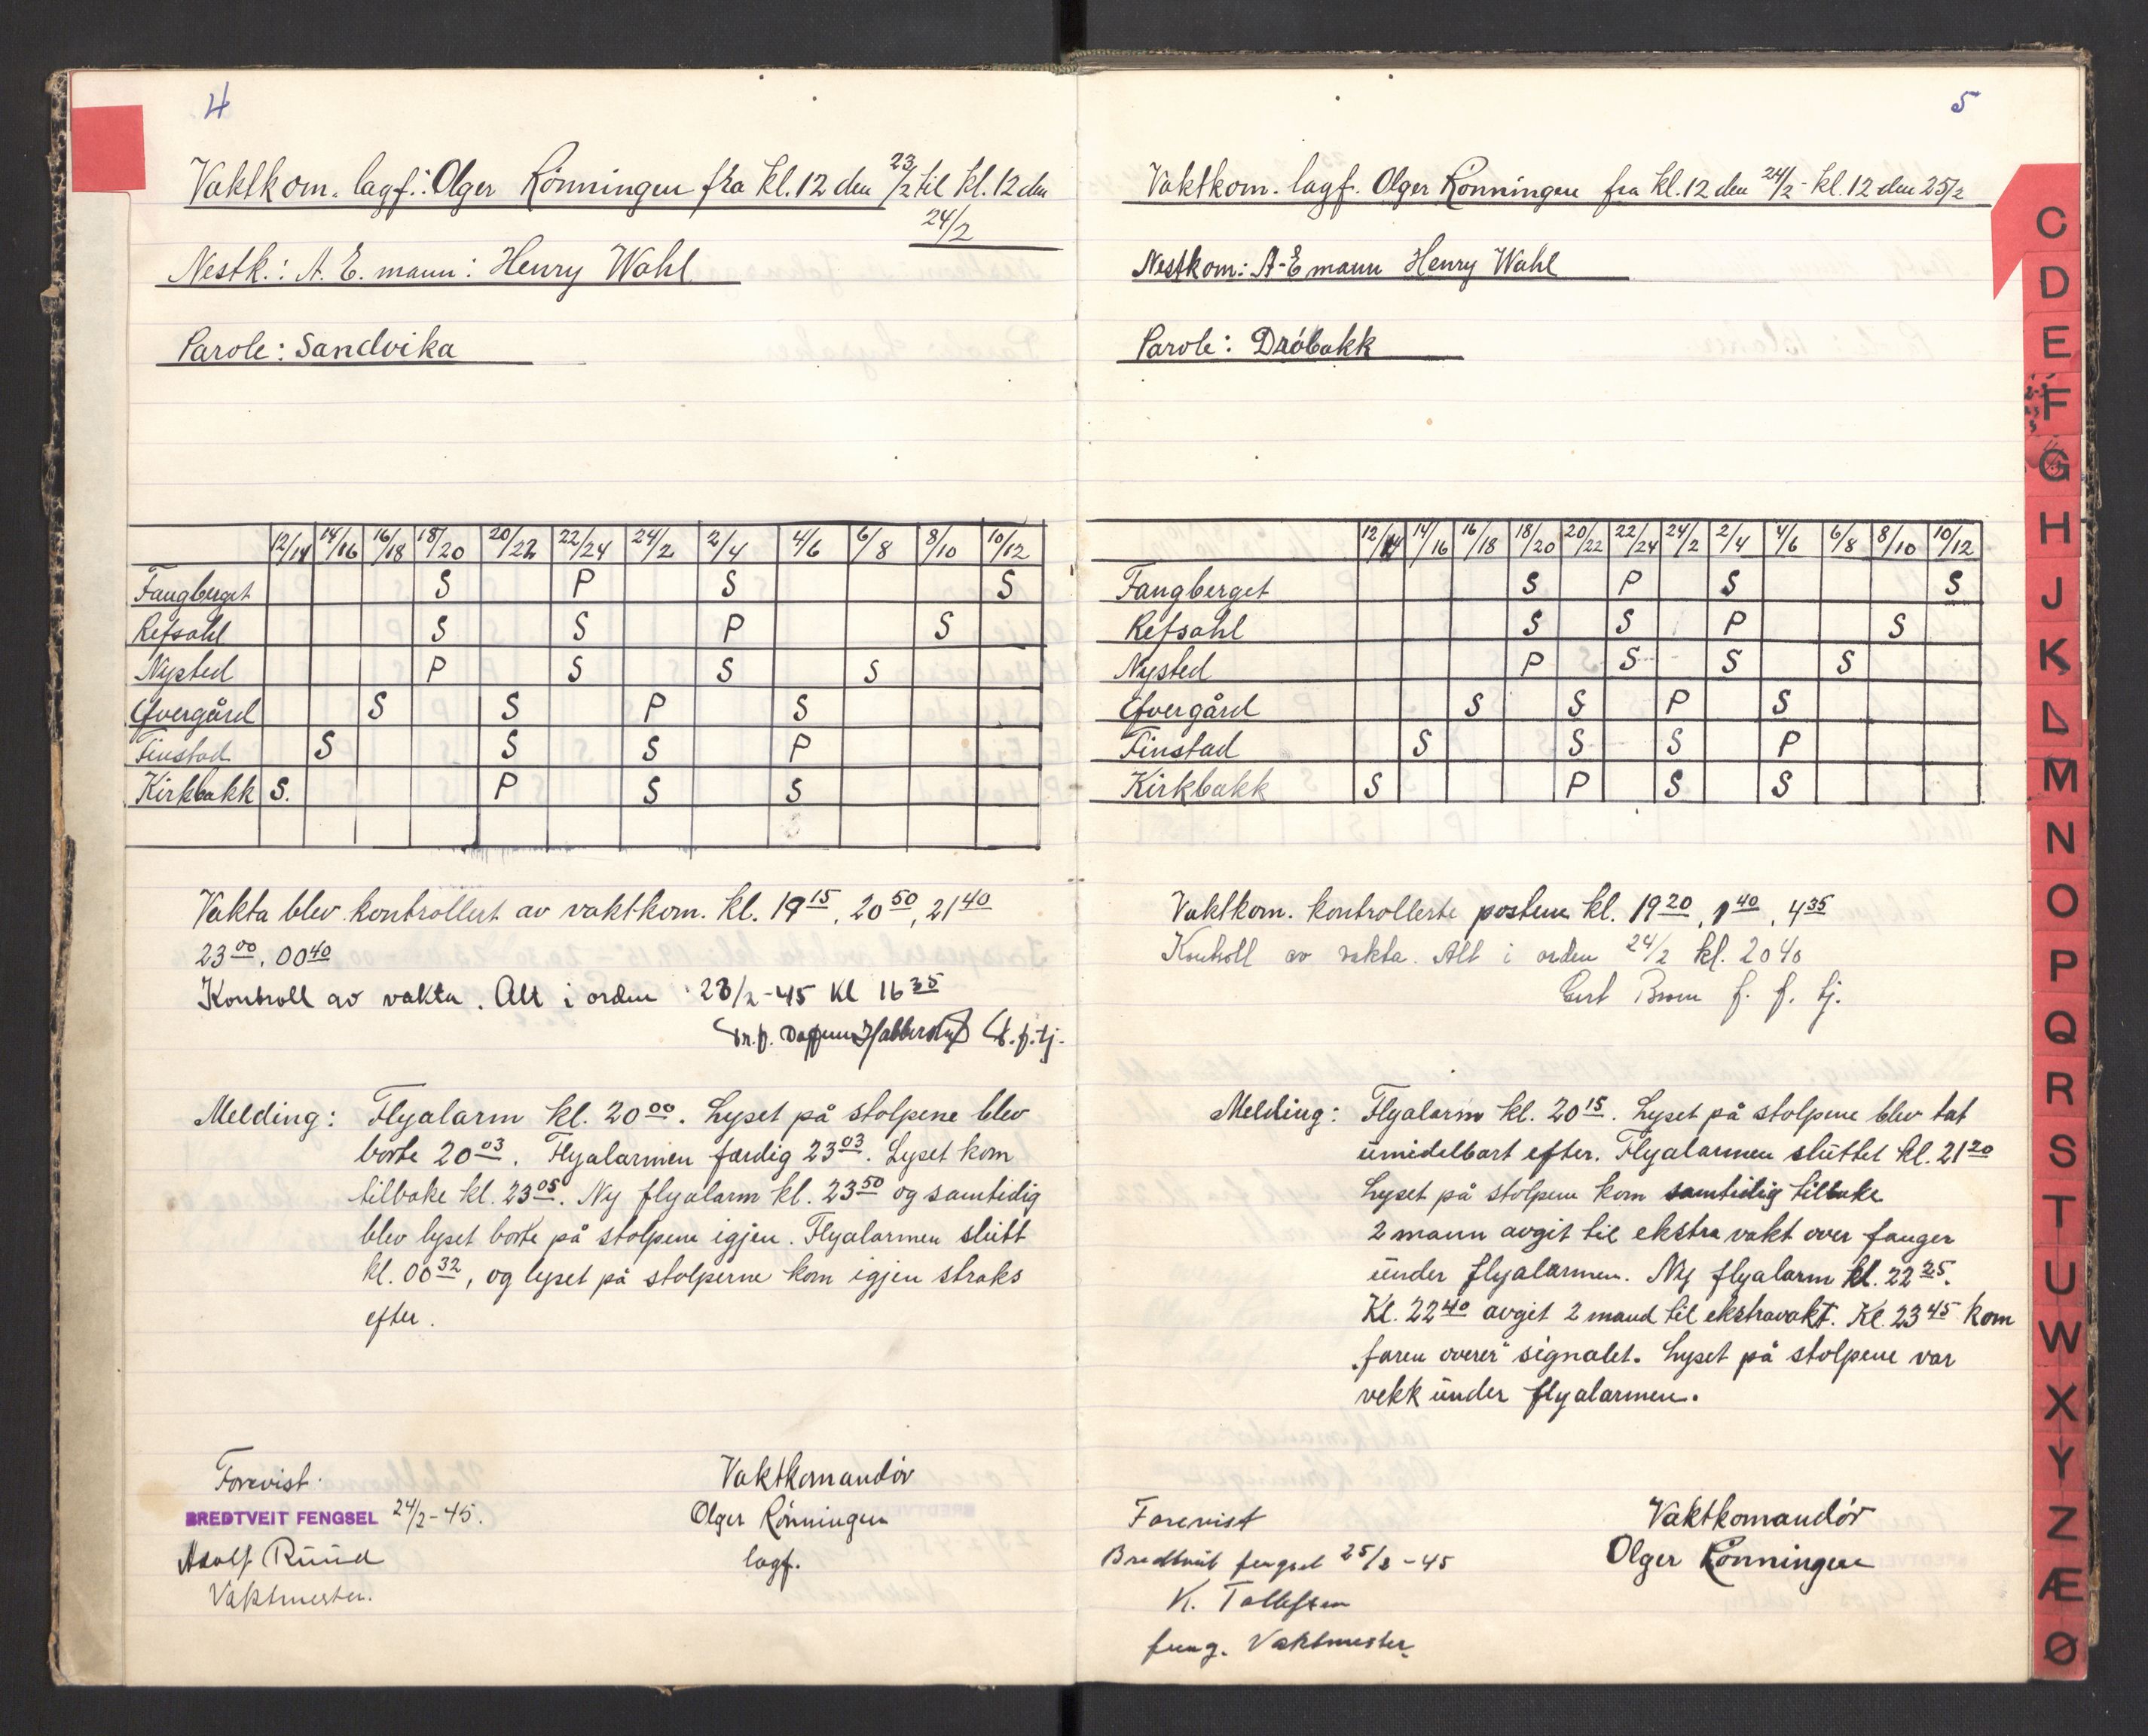 4
Vaktkom. lagf.: Olger Rønningen fra kl. 12 den 23/2 til kl. 12 den
24/2
Nestk.: A. E. mann: Henry Wahl
Parole: Sandvika
12/14 14/16 16/18 18/20 20/22 22/24 24/2 2/4 4/6 6/8 8/10 10/12
Fangberget S P S S
Refsahl S S P S
Nysted P S S S
Øvergård S S P S
Finstad S S S P
Kirkbakk S. P S S
Vakta blev kontrollert av vaktkom. kl. 19 15, 20 50, 21 40
23 00, 00 40
Kontroll av vakta. Alt i orden 23/2-45 kl 16 35
f. tj.
Melding: Flyalarm kl. 20 00. Lyset på stolpene blev
borte 20 03. Flyalarmen færdig 23 03. Lyset kom
tilbake kl. 23 05. Ny flyalarm kl. 23 50 og samtidig
blev lyset borte på stolpene igjen. Flyalarmen slutt
kl. 00 32, og lyset på stolperne kom igjen straks
efter.
Forevist. Vaktkomandør
BREDTVEIT FENGSEL 24/2-45. Olger Rønningen
Adolf Ruud lagf.
Vaktmester.
5
Vaktkom. lagf. Olger Rønningen fra kl. 12 den 24/2 - kl. 12 den 25/2
Nestkom: A-E mann Henry Wahl
Parole: Drøbakk
12/14 14/16 16/18 18/20 20/22 22/24 24/2 2/4 4/6 6/8 8/10 10/12
Fangberget S P S S
Refsahl S S P S
Nysted P S S S
Øvergård S S P S
Finstad S S S P
Kirkbakk S P S S
Vaktkom. kontrollerte postene kl. 19 20, 1 40, 4 35
Kontroll av vakta. Alt i orden 24/2 kl. 20 40
f. f. tj.
Melding: Flyalarm kl. 20 15. Lyset på stolpene blev tat
umidelbart efter. Flyalarmen sluttet kl. 21 20
Lyset på stolpene kom samtidig tilbake
2 mann avgit til ekstra vakt over fanger
under flyalarmen. Ny flyalarm kl. 22 25.
Kl. 22 40 avgit 2 mand til ekstravakt. Kl. 23 45 kom
„faren over" signalet. Lyset på stolpene var
vekk under flyalarmen.
Forevist Vaktkomandør
Bredtveit fengsel 25/2-45 Olger Rønningen
K. Tollefsen
fung. Vaktmester.
C
D
E
F
G
H
J
K
L
M
N
O
P
Q
R
S
T
U
W
X
Y
Z
Æ
Ø